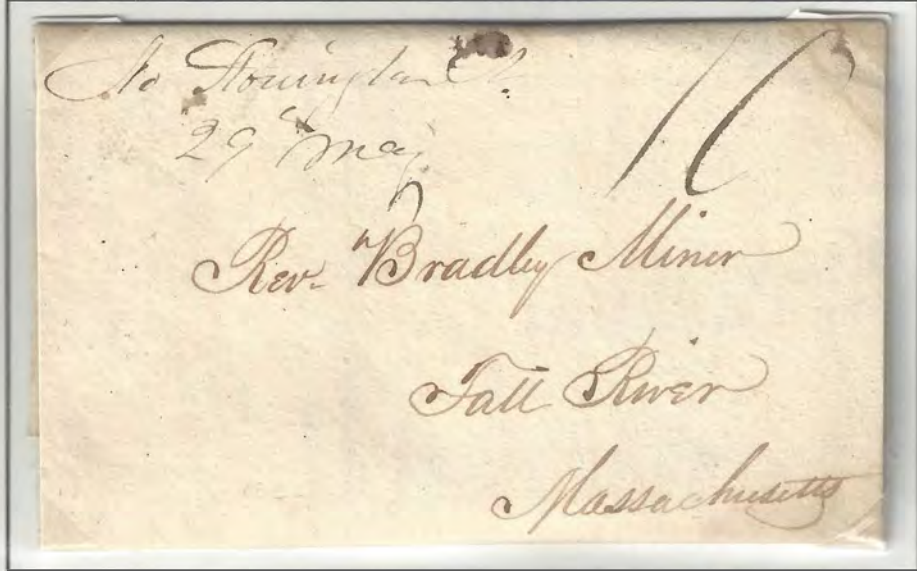 No Stonington Ct.
29 May
10
Rev. Bradley Miner
Fall River
Massachusetts